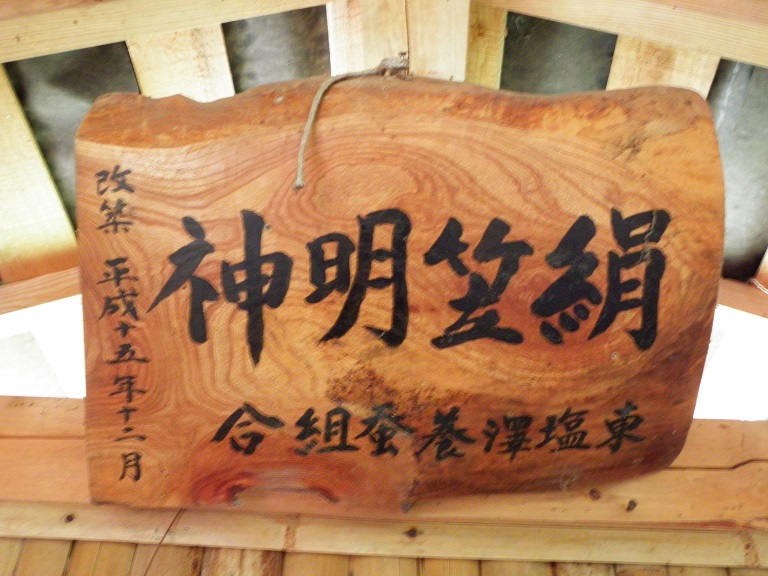 絹笠明神
東塩澤養蚕組合
改築 平成十五年十二月